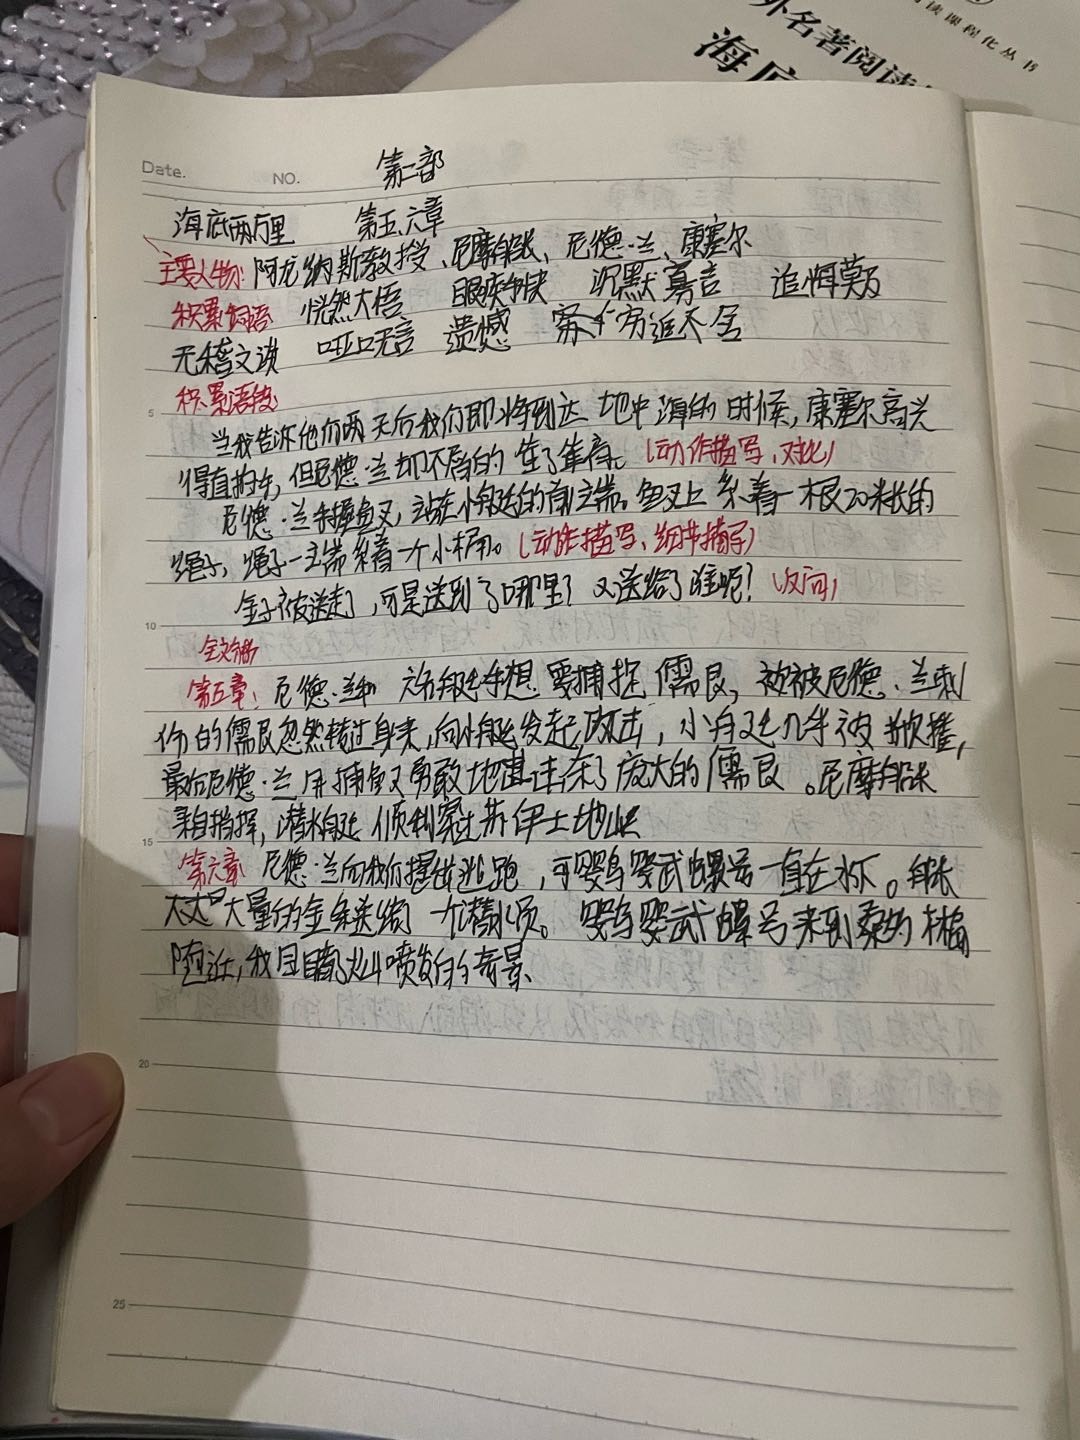 阅读课程化丛书
外名著阅读
海底
Date.
NO.
第二部
海底两万里 第五、六章
主要人物: 阿龙纳斯教授、尼摩船长、尼德·兰、康塞尔
积累词语 恍然大悟 眼疾手快 沉默寡言 追悔莫及
无稽之谈 哑口无言 遗憾 穷追不舍
积累语段
当我告诉他们两天后我们即将到达地中海的时候,康塞尔高兴
得直拍手,但尼德·兰却不屑的耸了耸肩。(动作描写、对比)
尼德·兰手握鱼叉,站在小艇的前端。鱼叉上系着一根20米长的
绳子,绳子一端系着一个小桶。(动作描写、细节描写)
金子被送走了,可是送到了哪里?又送给了谁呢?(设问)
5
10
全文
第五章: 尼德·兰和六名艇手想要捕捉儒艮,被尼德·兰刺
伤的儒艮忽然转过身来,向小艇发起攻击,小艇几乎被掀
最后尼德·兰用捕鱼叉勇敢地击杀了庞大的儒艮。尼摩船长
亲自指挥,潜水艇顺利穿过苏伊士地峡
15
第六章 尼德·兰向我们提出逃跑,可鹦鹉螺号一直在水下。船长
大量的金条送给一个潜水员。鹦鹉螺号来到桑多林岛
附近,我目睹了火山喷发的奇景
20
25